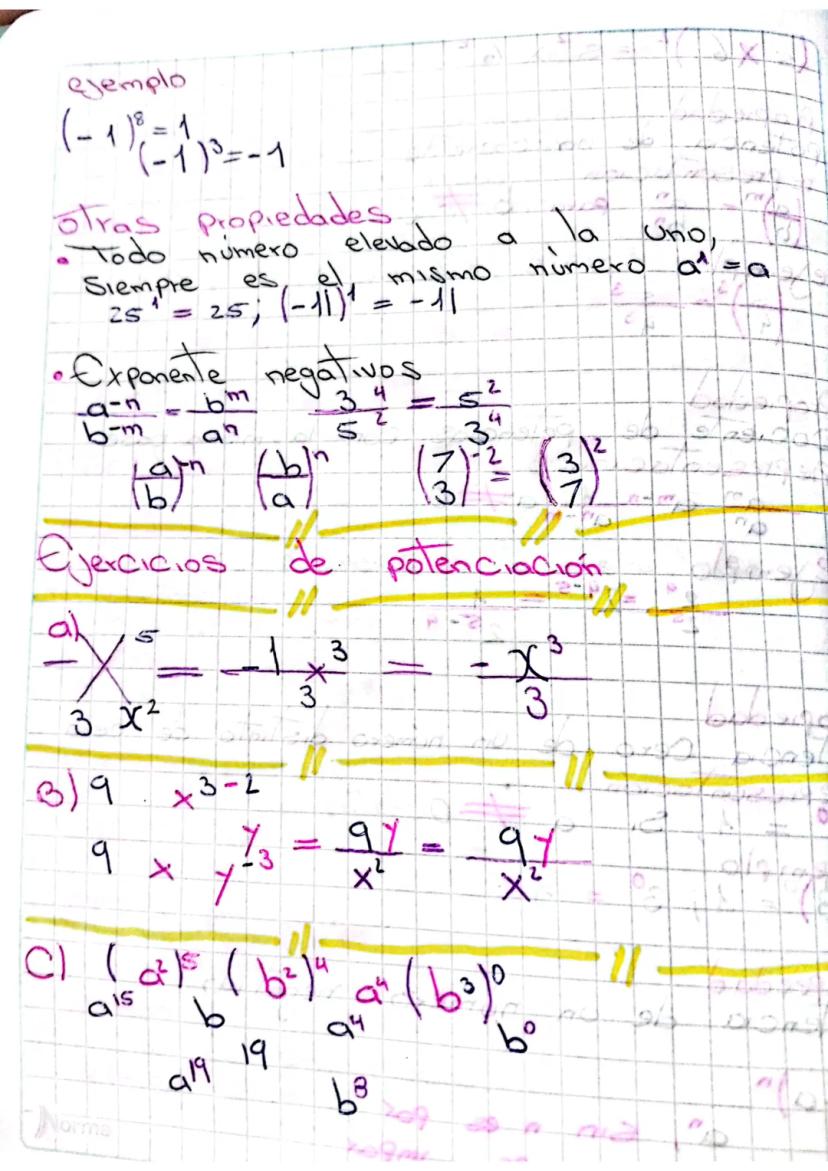 ejemplo
(-1)⁸ = 1
(-1)³ = -1
otras propiedades
• Todo número elevado a la uno,
Siempre es el mismo número a¹ = a
25¹ = 25; (-11)¹ = -11
• Exponente negativos
a-n/b-m = bᵐ/aⁿ   3⁴/5² = 5²/3⁴
(a/b)⁻ⁿ (b/a)ⁿ   (7/3)⁻² = (3/7)²
Ejercicios de potenciación
a) - x⁵/3x² = -1x³/3 = -x³/3
B) 9 . x³⁻²
9 x y/y⁻³ = 9y/x² = 9y/x²
C) (a²)⁵ (b²)⁴ a⁴ (b³)⁰
a¹⁵ b a⁴ b⁰
a¹⁹ 19 b⁸
Norma